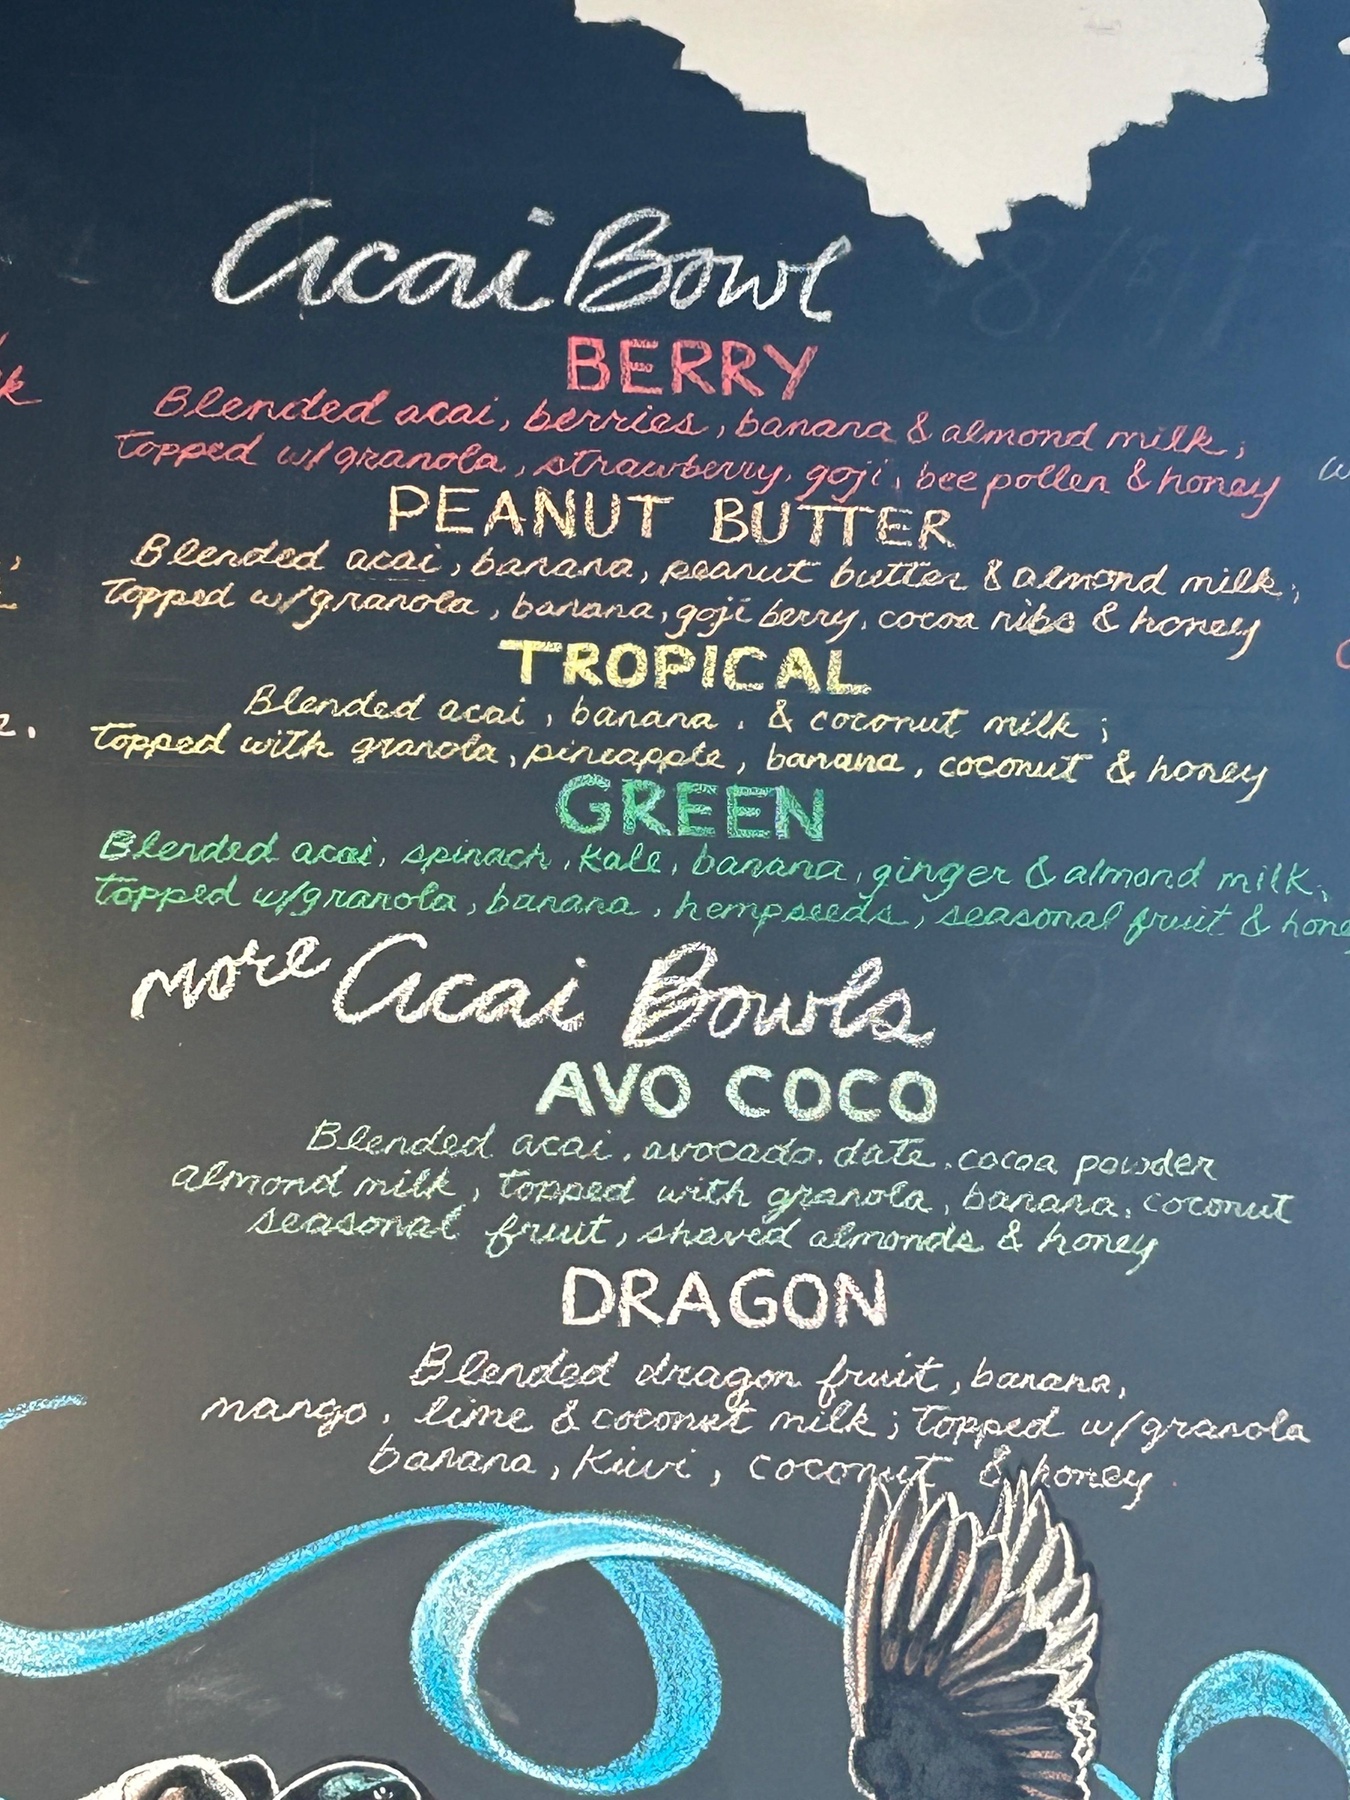 Acai Bowl
BERRY
Blended acai, berries, banana & almond milk;
topped w/granola, strawberry, goji, bee pollen & honey
PEANUT BUTTER
Blended acai, banana, peanut butter & almond milk,
topped w/granola, banana, goji berry, cocoa nibs & honey
TROPICAL
Blended acai, banana, & coconut milk;
topped with granola, pineapple, banana, coconut & honey
GREEN
Blended acai, spinach, kale, banana, ginger & almond milk,
topped w/granola, banana, hempseeds, seasonal fruit & hone
more Acai Bowls
AVO COCO
Blended acai, avocado, date, cocoa powder
almond milk, topped with granola, banana, coconut
seasonal fruit, shaved almonds & honey
DRAGON
Blended dragon fruit, banana,
mango, lime & coconut milk; topped w/granola
banana, kiwi, coconut & honey